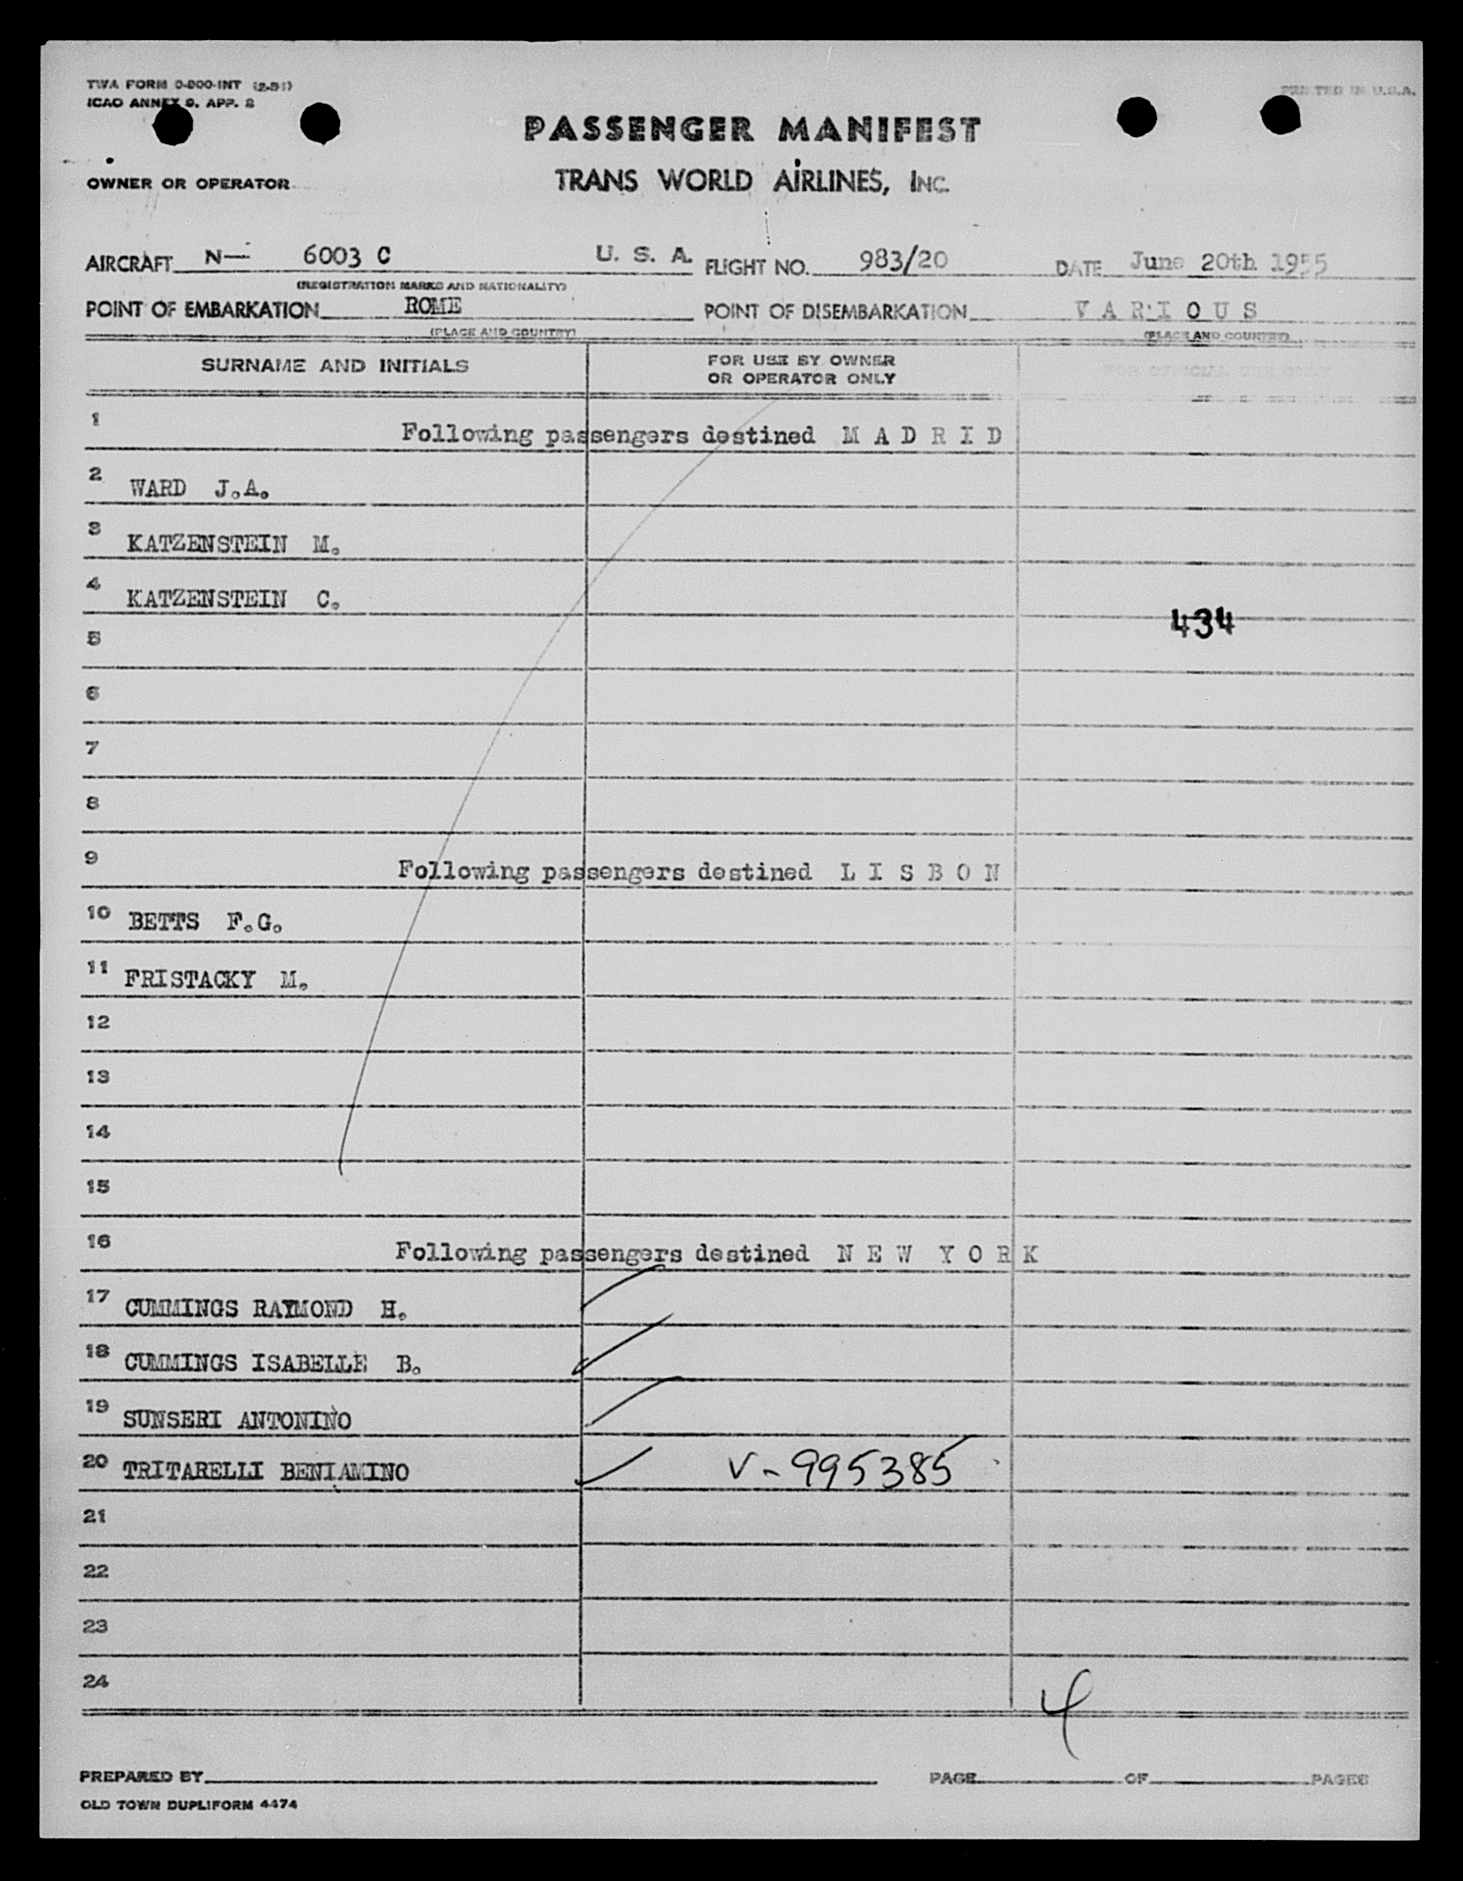 TWA FORM 0-800-INT (2-51)
ICAO ANNEX 9. APP. 2
PRINTED IN U.S.A.
PASSENGER MANIFEST
OWNER OR OPERATOR
TRANS WORLD AIRLINES, INC.
AIRCRAFT N— 6003 C U. S. A. FLIGHT NO. 983/20 DATE June 20th 1955
(REGISTRATION MARKS AND NATIONALITY)
POINT OF EMBARKATION ROME POINT OF DISEMBARKATION V A R I O U S
(PLACE AND COUNTRY) (PLACE AND COUNTRY)
SURNAME AND INITIALS
FOR USE BY OWNER
OR OPERATOR ONLY
FOR OFFICIAL USE ONLY
1 Following passengers destined M A D R I D
2 WARD J.A.
3 KATZENSTEIN M.
4 KATZENSTEIN C.
434
5
6
7
8
9 Following passengers destined L I S B O N
10 BETTS F.G.
11 FRISTACKY M.
12
13
14
15
16 Following passengers destined N E W Y O R K
17 CUMMINGS RAYMOND H.
18 CUMMINGS ISABELLE B.
19 SUNSERI ANTONINO
20 TRITARELLI BENIAMINO V-995385
21
22
23
24
4
PREPARED BY PAGE OF PAGES
OLD TOWN DUPLIFORM 4474